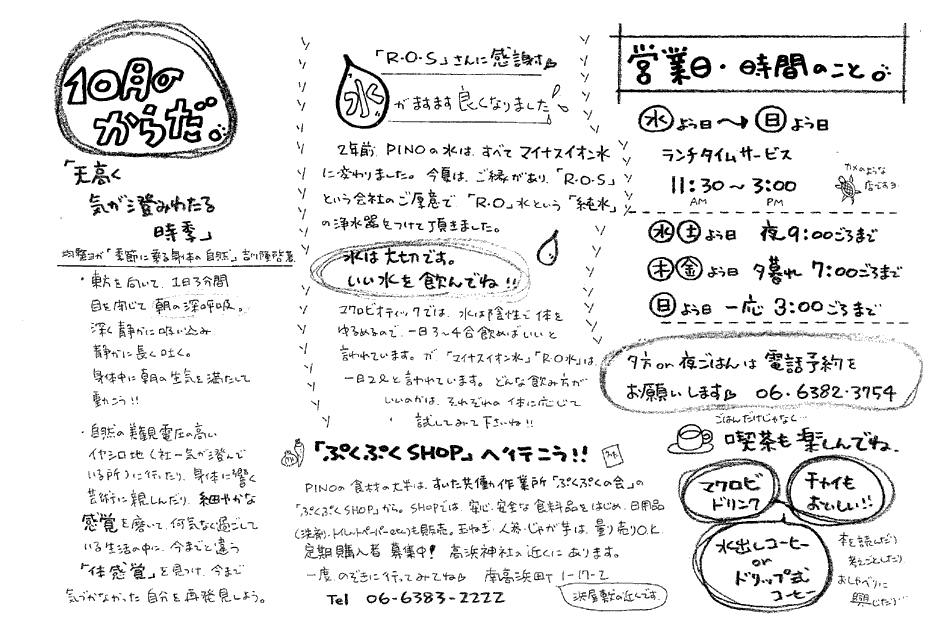 10月の
からだ。
「天高く
気が澄みわたる
時季」
・東方を向いて、1日3分間
目を閉じて朝の深呼吸。
深く静かに吸い込み
静かに長く吐く。
身体中に朝の生気を満たして
動こう!!
・自然の 電圧の高い
イヤシロ地(社…気が澄んで
いる所)に行たり、身体に響く
芸術に親しんだり、細やかな
感覚を磨いて、何気なく過ごして
いる生活の中に、今までと違う
「体感覚」を見つけ、今まで
気づかなかった自分を再発見しよう。
「R・O・S」さんに感謝す
水がますます良くなりました!
2年前、PINOの水は、すべてマイナスイオン水
に変わりました。今夏は、ご縁があり、「R・O・S」
という会社のご厚意で「R・O」水という「純水」
の浄水器をつけて頂きました。
水は大切です。
いい水を飲んでね!!
マクロビオティックでは、水は陰性で体を
ゆるめるので、一日3〜4合飲めばいいと
言われています。が「マイナスイオン水」「R・O水」は、
一日2ℓと言われています。どんな飲み方が
いいのかは、それぞれの体に応じて
試してみて下さいね!!
「ぷくぷくSHOP」へ行こう!!
PINOの食材の大半は、すいた共働作業所「ぷくぷくの会」の
「ぷくぷくSHOP」から。SHOPでは、安心・安全な食料品をはじめ、日用品
(洗剤、トイレットペーパーetc)も販売。玉ねぎ・人参・じゃが芋は、量り売りO.K.
定期購入者募集中!高浜神社の近くにあります。
一度、のぞきに行ってみてね
南高浜町1-17-2
Tel 06-6383-2222
浜屋敷の近くです。
営業日・時間のこと。
水よう日〜→日よう日
ランチタイムサービス
11:30〜3:00
AM PM
カメのような
店ですヨ
水土よう日 夜9:00ごろまで
木金よう日 夕暮れ7:00ごろまで
日よう日 一応3:00ごろまで
夕方or夜ごはんは電話予約を
お願いします 06-6382-3754
ごはんだけじゃなく…
喫茶も楽しんでね。
マクロビ
ドリンク
チャイも
おいしい!!
水出しコーヒー
or
ドリップ式
コーヒー
本を読んだり
考えごとしたり
おしゃべりに
興じたり…